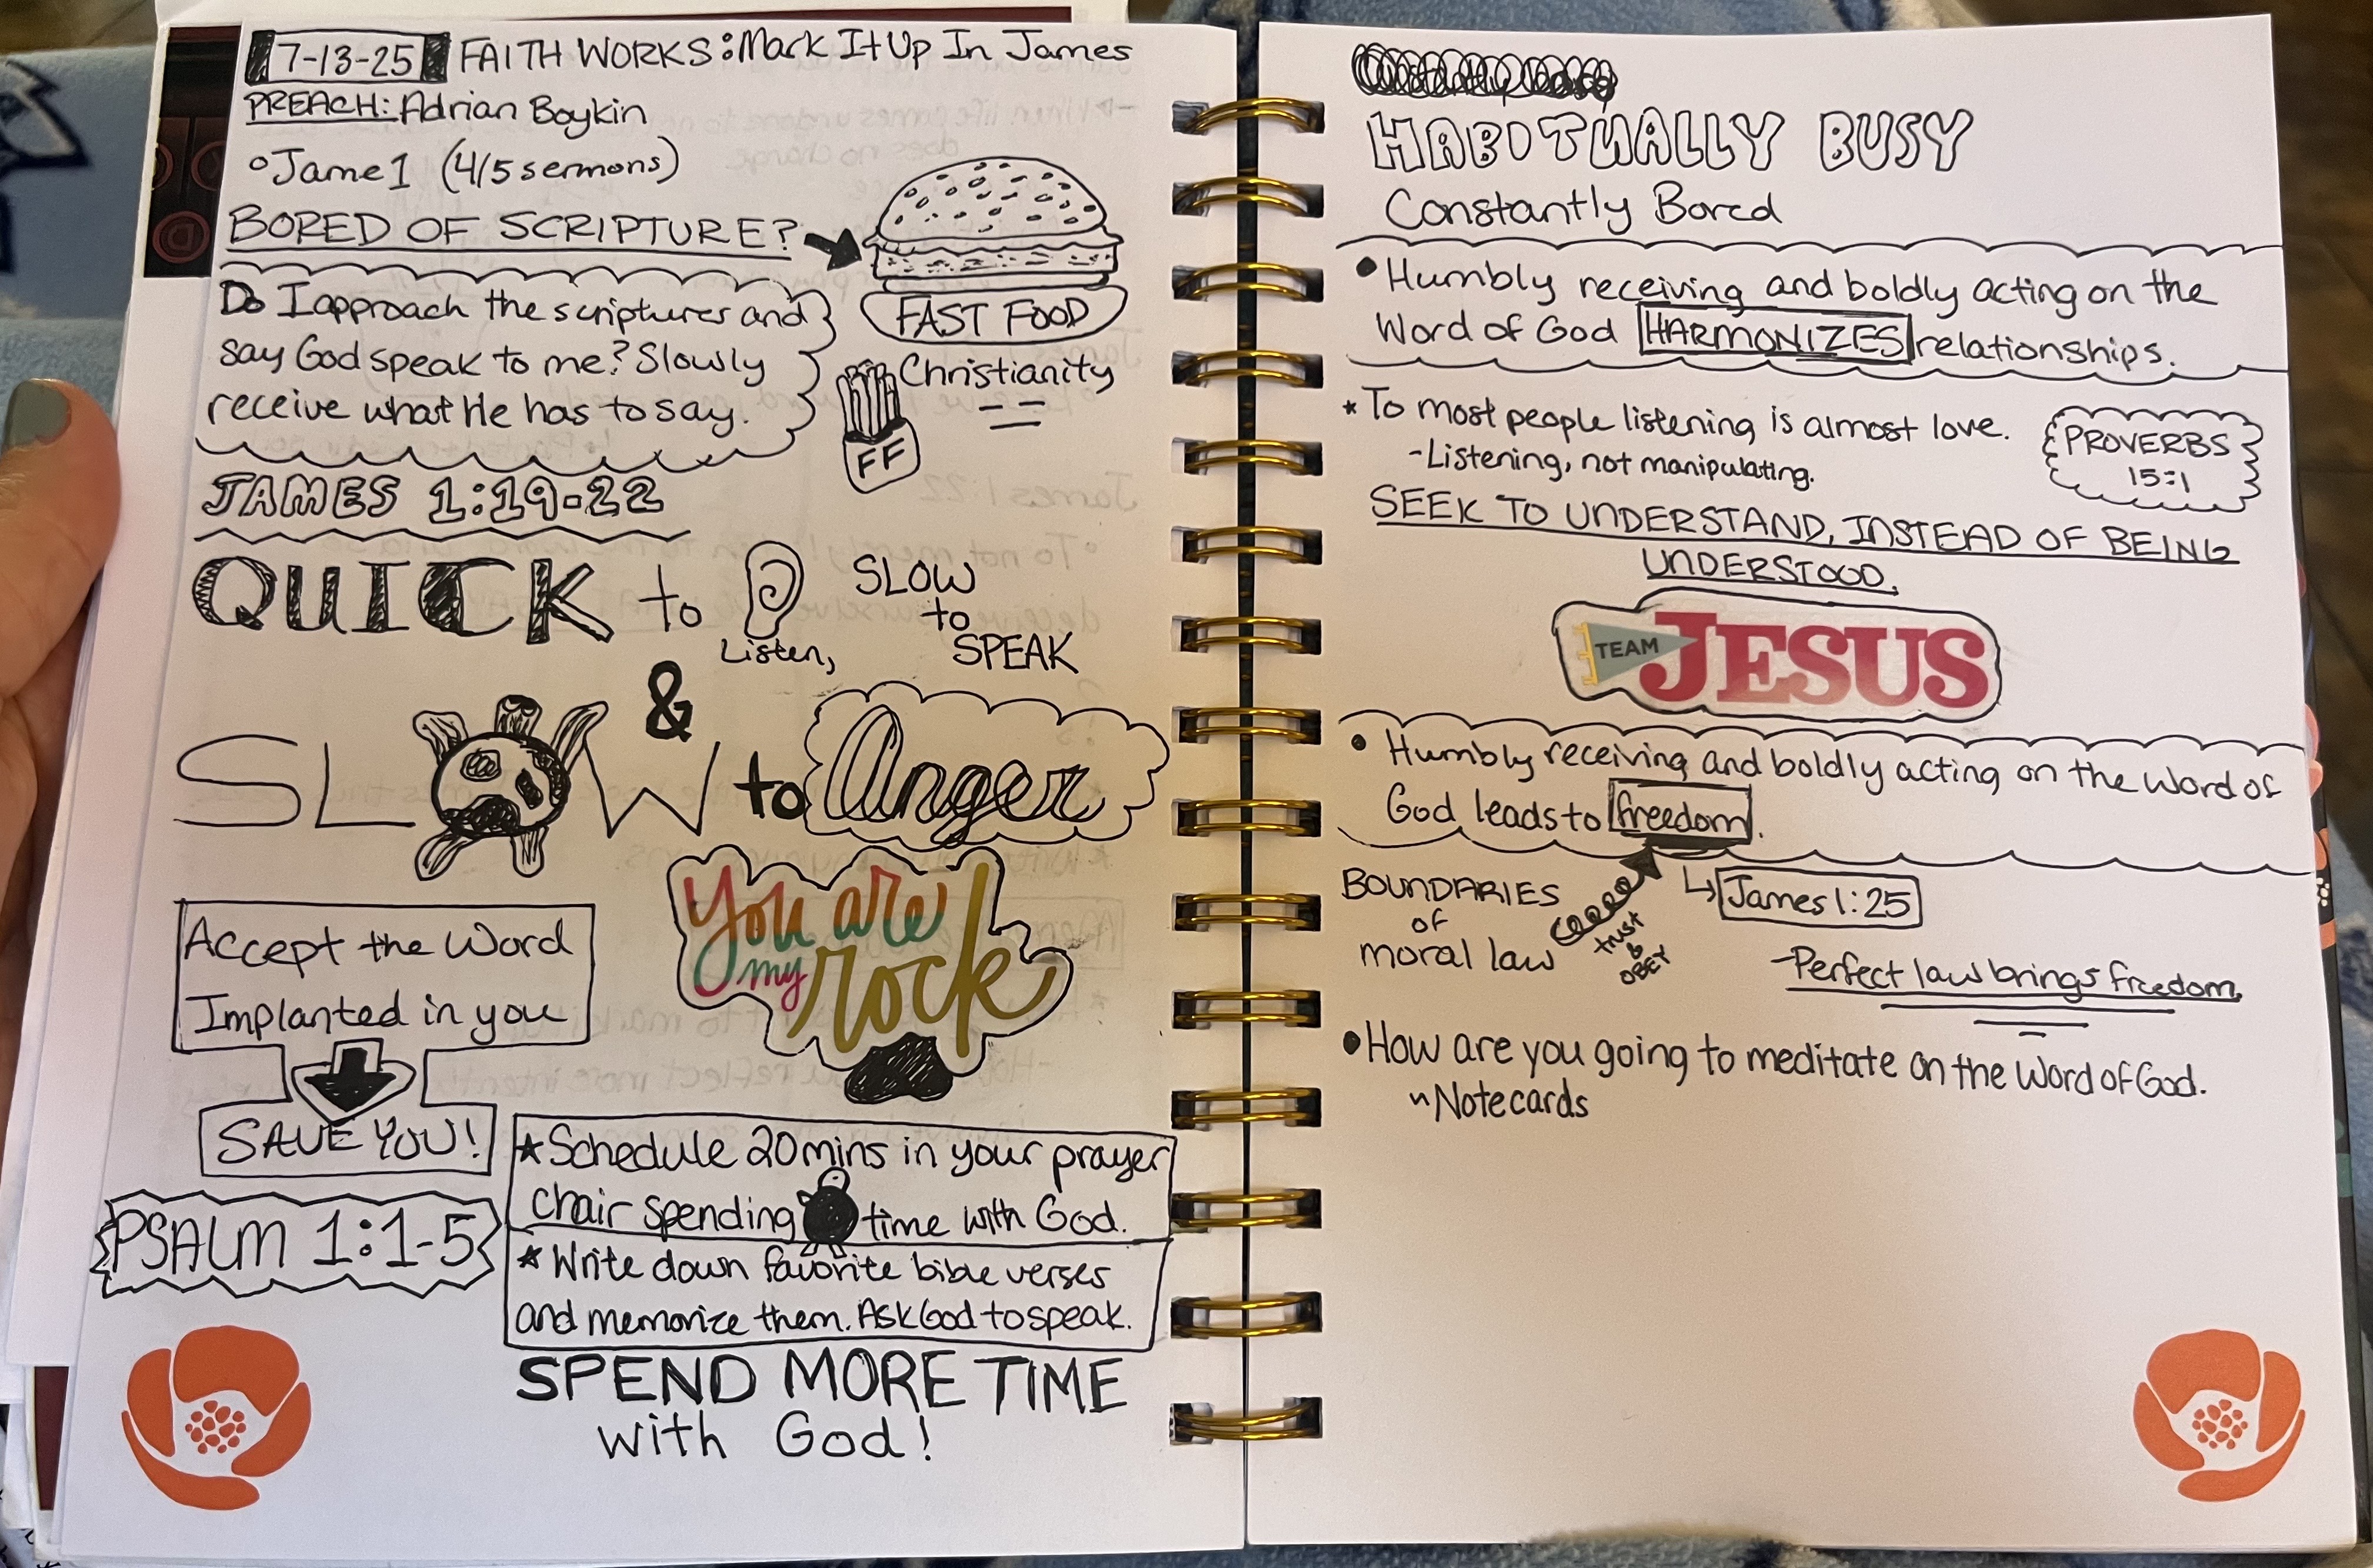 7-13-25 FAITH WORKS: Mark It Up In James
PREACH: Adrian Boykin
Jame 1 (4/5 sermons)
BORED OF SCRIPTURE?
FAST FOOD
Christianity
FF
Do I approach the scriptures and
say God speak to me? Slowly
receive what He has to say.
JAMES 1:19-22
QUICK to
Listen,
SLOW
to
SPEAK
&
SLOW to Anger
You are
my rock
Accept the Word
Implanted in you
SAVE YOU!
PSALM 1:1-5
★ Schedule 20 mins in your prayer
chair spending time with God.
★ Write down favorite bible verses
and memorize them. Ask God to speak.
SPEND MORE TIME
with God!
HABITUALLY BUSY
Constantly Bored
• Humbly receiving and boldly acting on the
Word of God HARMONIZES relationships.
* To most people listening is almost love.
- Listening, not manipulating.
PROVERBS
15:1
SEEK TO UNDERSTAND, INSTEAD OF BEING
UNDERSTOOD.
TEAM JESUS
• Humbly receiving and boldly acting on the Word of
God leads to freedom.
BOUNDARIES
of
moral law
trust
&
OBEY
James 1:25
- Perfect law brings freedom.
• How are you going to meditate on the Word of God.
~ Notecards